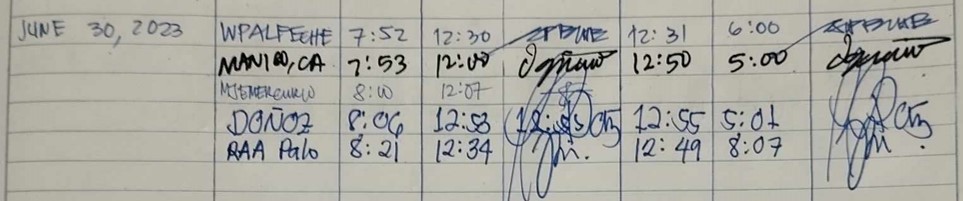 JUNE 30, 2023 WPALFECHE 7:52 12:30 12:31 6:00
MANIQO, CA 7:53 12:00 12:50 5:00
MJEMERCURIO 8:10 12:07
DOÑOZ 8:06 12:53 12:55 5:01
RAA Palo 8:21 12:34 12:49 8:07